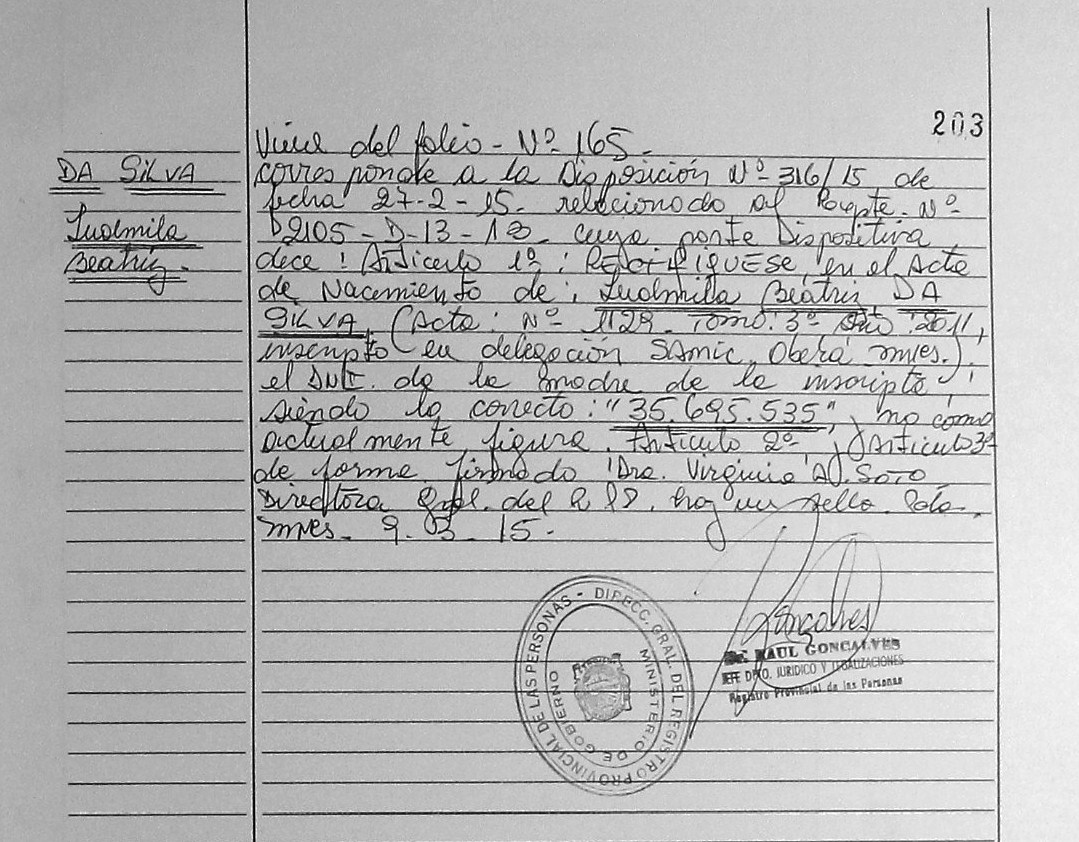 203
Viene del folio - Nº 165 -
DA SILVA
Ludmila
Beatriz -
corresponde a la Disposición Nº 316/15 de
fecha 27-2-15- relacionado al Nº
2105-D-13- cuya parte Dispositiva
dece: Articulo 1º: RECTIFIQUESE, en el Acta
de Nacimiento de: Ludmila Beatriz DA
SILVA (Acta: Nº 1129 - Tomo: 3º Año: 2011,
inscripto en delegación SAMIC. Oberá mnes.)
el DNI. de la madre de la inscripta,
siendo lo correcto: "35.695.535", no como
actualmente figura. Articulo 2º, Articulo 3º
de forma firmado Dra. Virginia A. SOTO
Directora Gral. del R P P. hay un sello. Pdas.
mnes. 9. 03. 15.-
DIRECC. GRAL. DEL REGISTRO PROVINCIAL DE LAS PERSONAS -
MINISTERIO DE GOBIERNO
Goncalves
RAUL GONCALVES
JEFE DPTO. JURIDICO Y LEGALIZACIONES
Registro Provincial de las Personas